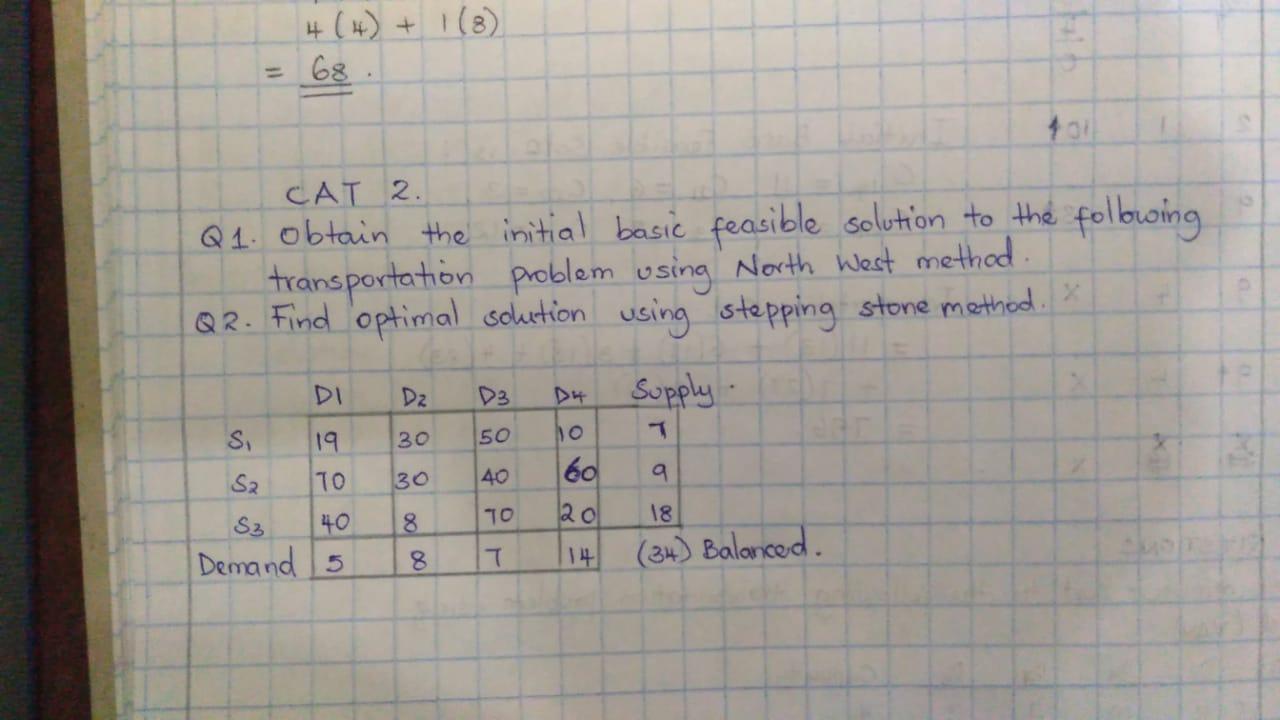 4(4) + 1(8)
= 68.
CAT 2.
Q1. Obtain the initial basic feasible solution to the following
transportation problem using North West method.
Q2. Find optimal solution using stepping stone method.
D1 D2 D3 D4 Supply.
S1 19 30 50 10 7
S2 70 30 40 60 9
S3 40 8 70 20 18
Demand 5 8 7 14 (34) Balanced.